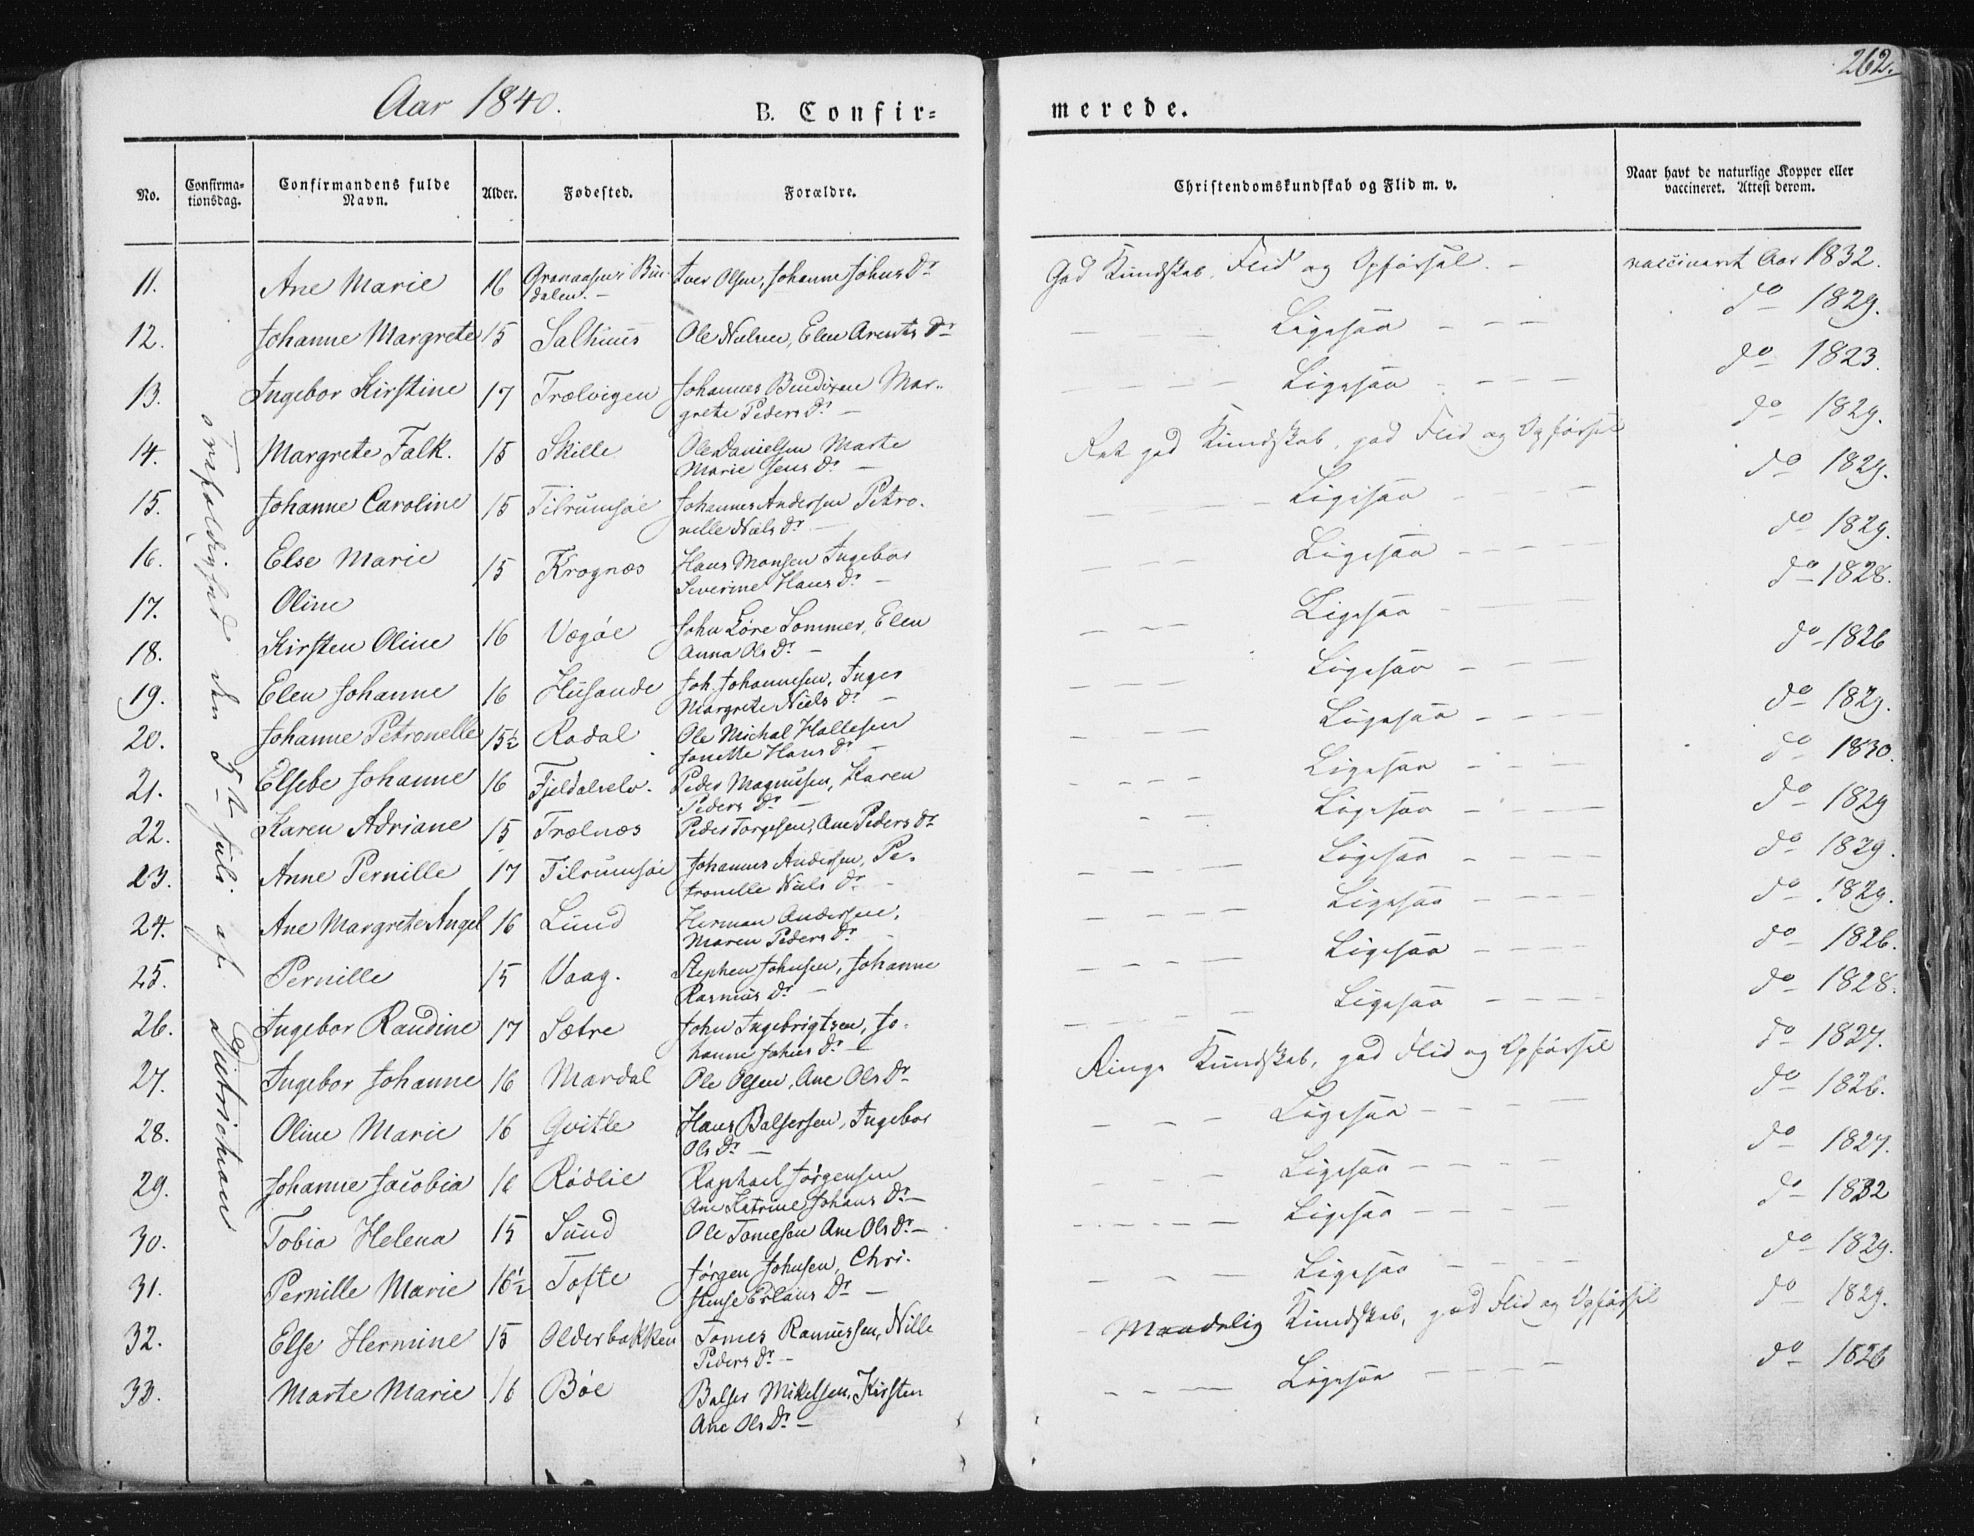 262.
Aar 1840.
B. Confir=
merede.
No.
Confirma=
tionsdag.
Confirmandens fulde
Navn.
Alder.
Fødested.
Forældre.
Christendomskundskab og Flid m. v.
Naar havt de naturlige Kopper eller
vaccineret. Attest derom.
den 5te Juli af Dietrichson
11. Ane Marie 16 Granaasen i Bin-
dalen. Iver Olsen, Johanne Johns Dr
God Kundskab, Flid og Opførsel. vaccineret Aar 1832.
12. Johanne Margrete 15 Salhuus Ole Nielsen, Elen Arents Dr
Ligesaa do 1829.
13. Ingebor Kirstine 17 Trælvigen Johannes Bendixen Mar-
grete Peders Dr
Ligesaa do 1823.
14. Margrete Falk. 15 Skille Ole Danielsen Marte
Marie Jens Dr
Ret god Kundskab, god Flid og Opførsel do 1829.
15. Johanne Caroline 15 Tilrumsøe Johannes Andersen Petro-
nille Niels Dr
Ligesaa do 1829.
16. Else Marie 15 Krognæs Hans Monsen Ingebor
Severine Hans Dr
Ligesaa do 1829.
17. Oline
Ligesaa do 1828.
18. Kirsten Oline 16 Vægøe John Løre Sommer, Elen
Anna Ols Dr
Ligesaa do 1826
19. Elen Johanne 16 Husande Joh. Johannesen, Inger
Margrete Niels Dr
Ligesaa do 1829.
20. Johanne Petronelle 15½ Rodal Ole Michal Hallesen
Jonette Hans Dr
Ligesaa do 1830.
21. Elsebe Johanne 16 Fjeldalselv. Peder Magnusen, Karen
Peders Dr
Ligesaa do 1829
22. Karen Adriane 15 Trælnæs Peder Torgersen, Ane Peders Dr
Ligesaa do 1829.
23. Anne Pernille 17 Tilrumsøe Johannes Andersen, Pe-
tronille Niels Dr
Ligesaa do 1829.
24. Ane Margrete Angel 16 Lund Herman Andersen,
Maren Peders Dr
Ligesaa do 1826.
25. Pernille 15 Vaag. Stephen Johnsen, Johanne
Rasmus Dr
Ligesaa do 1828.
26. Ingebor Randine 17 Sætre John Ingebrigtsen, Jo-
hanne Johns Dr
Ringe Kundskab, god Flid og Opførsel do 1827.
27. Ingebor Johanne 16 Mardal Ole Olsen, Ane Ols Dr
Ligesaa do 1826.
28. Oline Marie 16 Qvitle Hans Balsersen, Ingebor
Ols Dr
Ligesaa do 1827.
29. Johanne Jacobia 16 Rødlie Raphael Jørgensen
Ane Katrine Johans Dr
Ligesaa do 1832
30. Tobia Helena 15 Sund Ole Tomesen Ane Ols Dr
Ligesaa do 1829.
31. Pernille Marie 16½ Tofte Jørgen Johnsen, Chri-
stense Erlans Dr
Maadelig Kundskab, god Flid og Opførsel do 1829.
32. Else Hermine 15 Olderbakken Tomes Rasmussen, Nille
Peders Dr
Ligesaa do 1826
33. Marte Marie 16 Bøe Balser Mikelsen, Kirsten
Ane Ols Dr